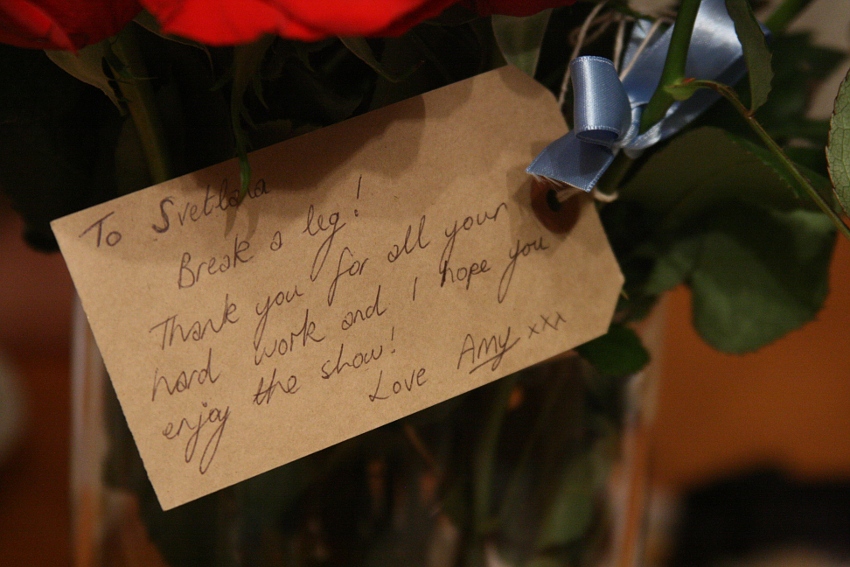 To Svetlana
Break a leg!
Thank you for all your
hard work and I hope you
enjoy the show!
Love Amy xxx